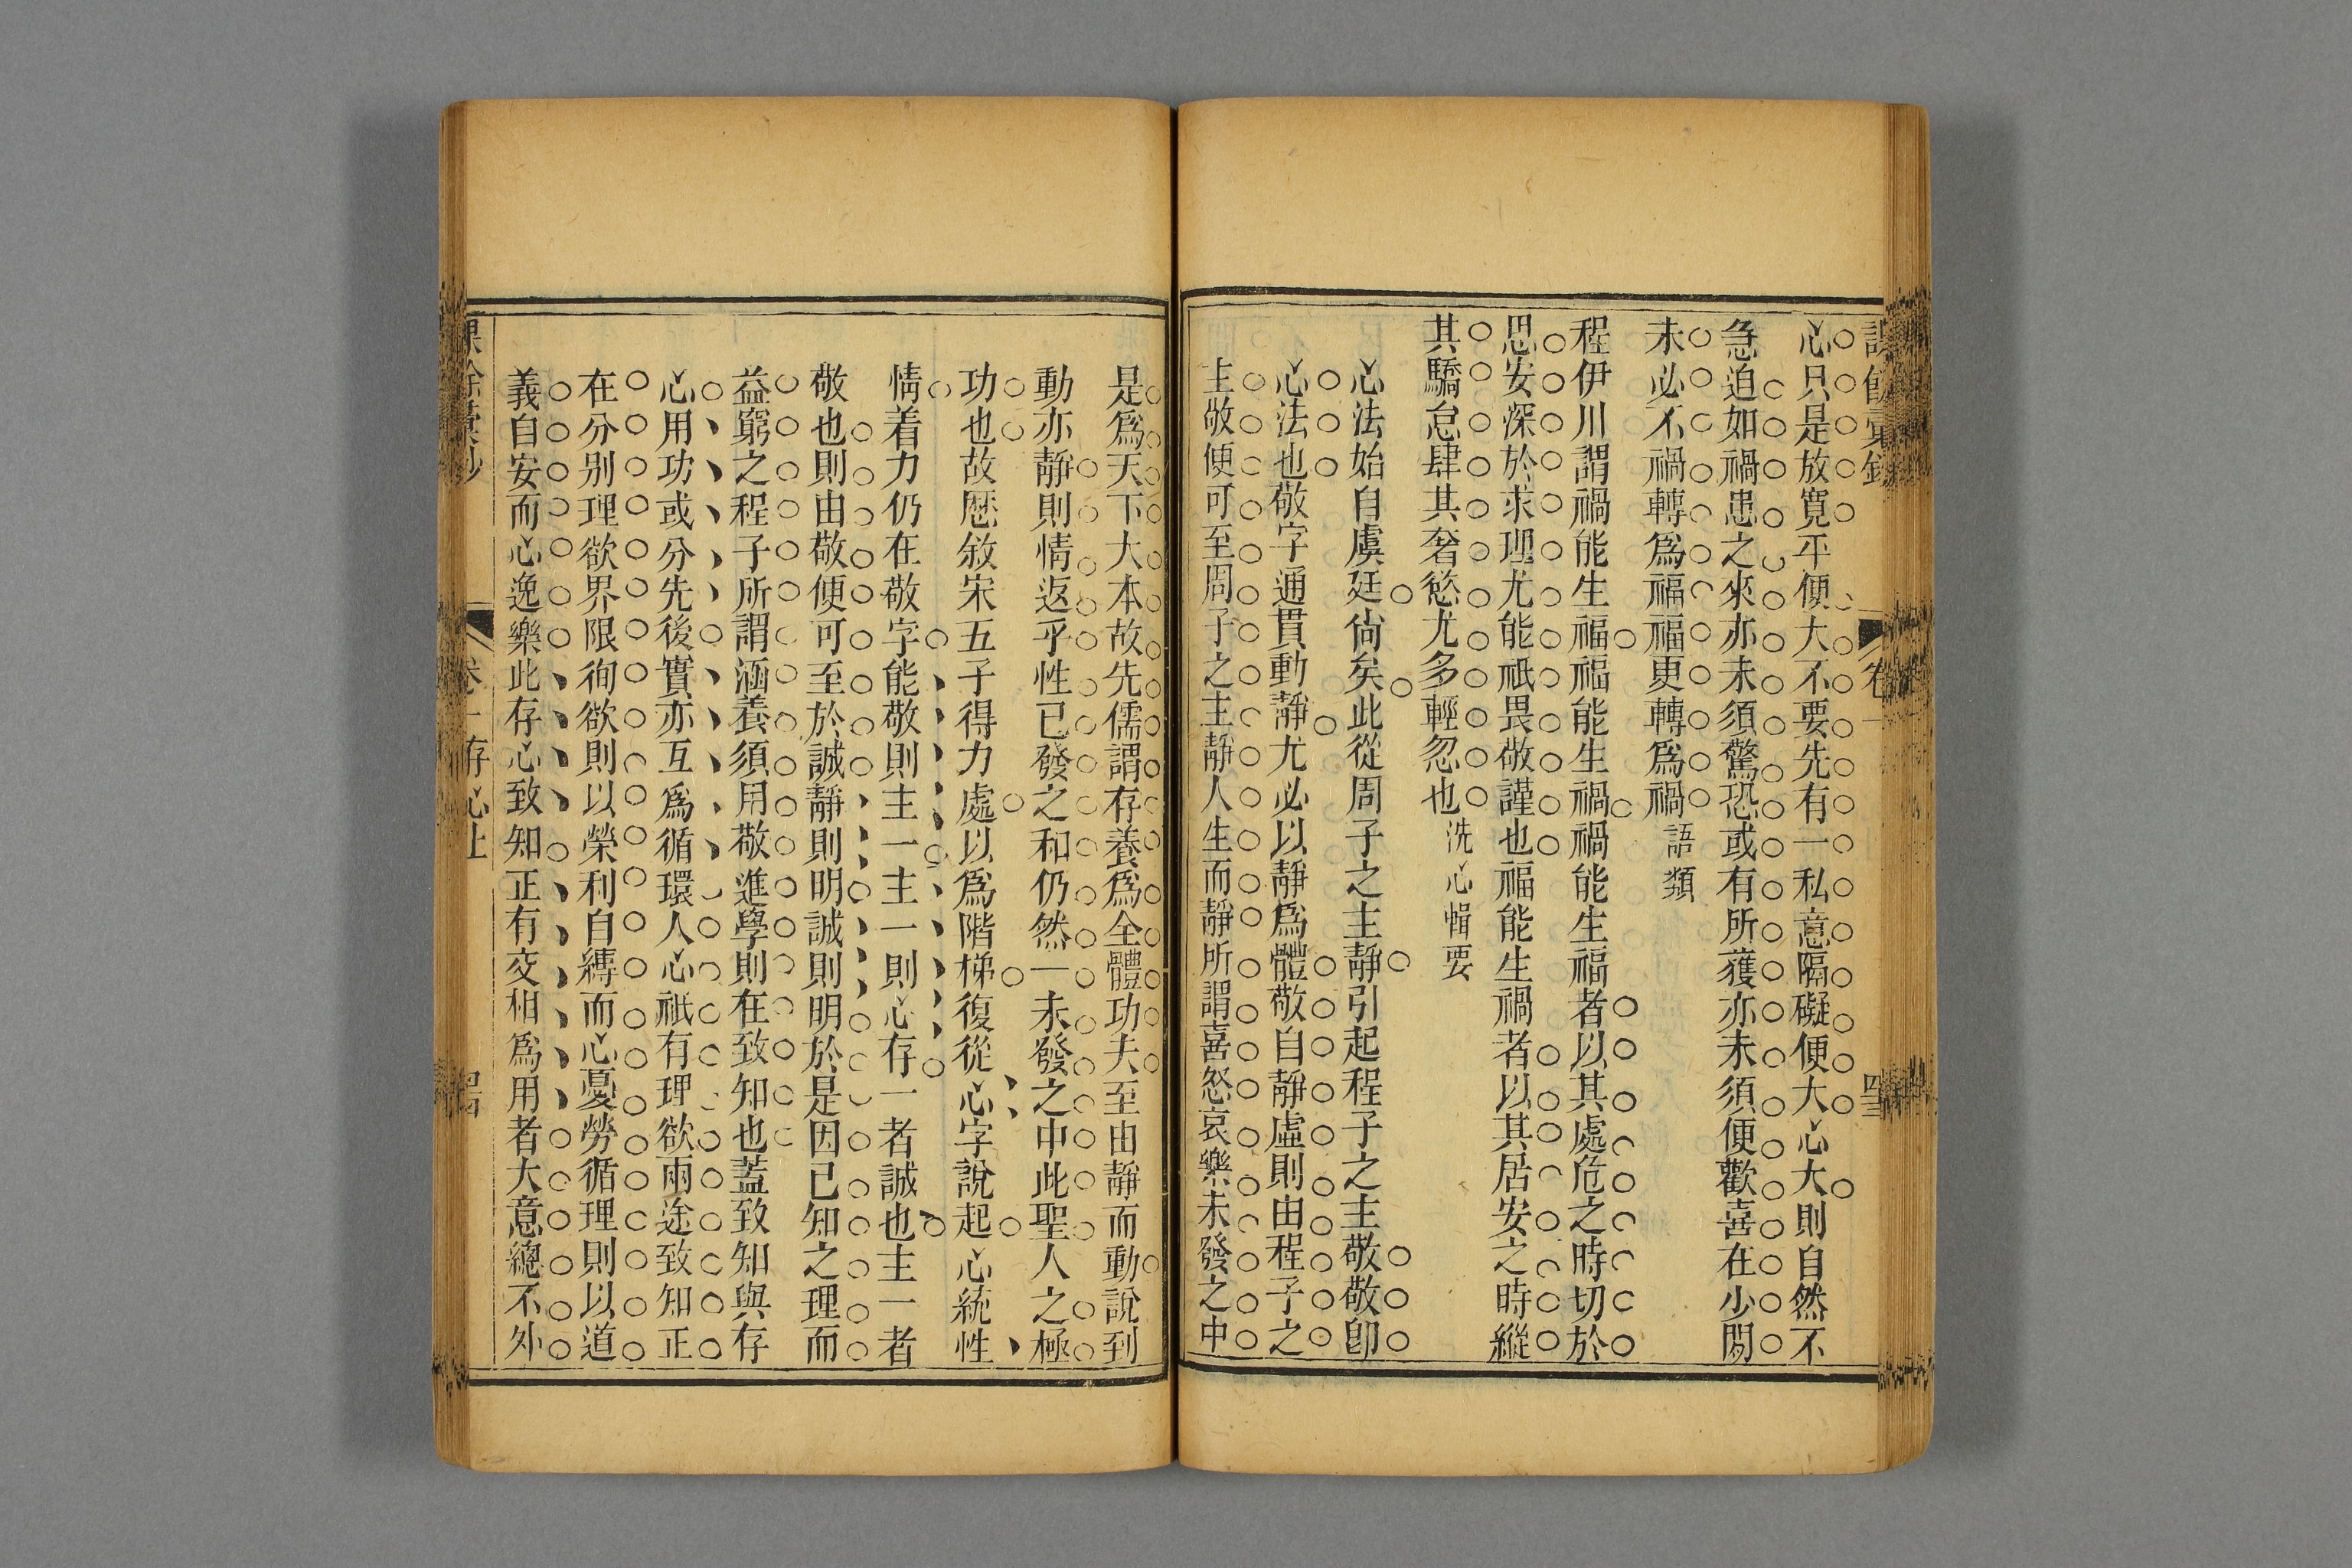 心只是放寬平便大不要先有一私意隔礙便大心大則自然不
急迫如禍患之來亦未須驚恐或有所獲亦未須便歡喜在少間
未必不禍轉爲福福更轉爲禍語類
程伊川謂禍能生福福能生禍禍能生福者以其處危之時切於
思安深於求理尤能祇畏敬謹也福能生禍者以其居安之時縱
其驕怠肆其奢慾尤多輕忽也洗心輯要
心法始自虞廷尙矣此從周子之主靜引起程子之主敬敬卽
心法也敬字通貫動靜尤必以靜爲體敬自靜虛則由程子之
主敬便可至周子之主靜人生而靜所謂喜怒哀樂未發之中
是爲天下大本故先儒謂存養爲全體功夫至由靜而動說到
動亦靜則情返乎性已發之和仍然一未發之中此聖人之極
功也故歷敘宋五子得力處以爲階梯復從心字說起心統性
情着力仍在敬字能敬則主一主一則心存一者誠也主一者
敬也則由敬便可至於誠靜則明誠則明於是因已知之理而
益窮之程子所謂涵養須用敬進學則在致知也蓋致知與存
心用功或分先後實亦互爲循環人心祇有理欲兩途致知正
在分别理欲界限徇欲則以榮利自縛而心憂勞循理則以道
義自安而心逸樂此存心致知正有交相爲用者大意總不外
卷一存心上